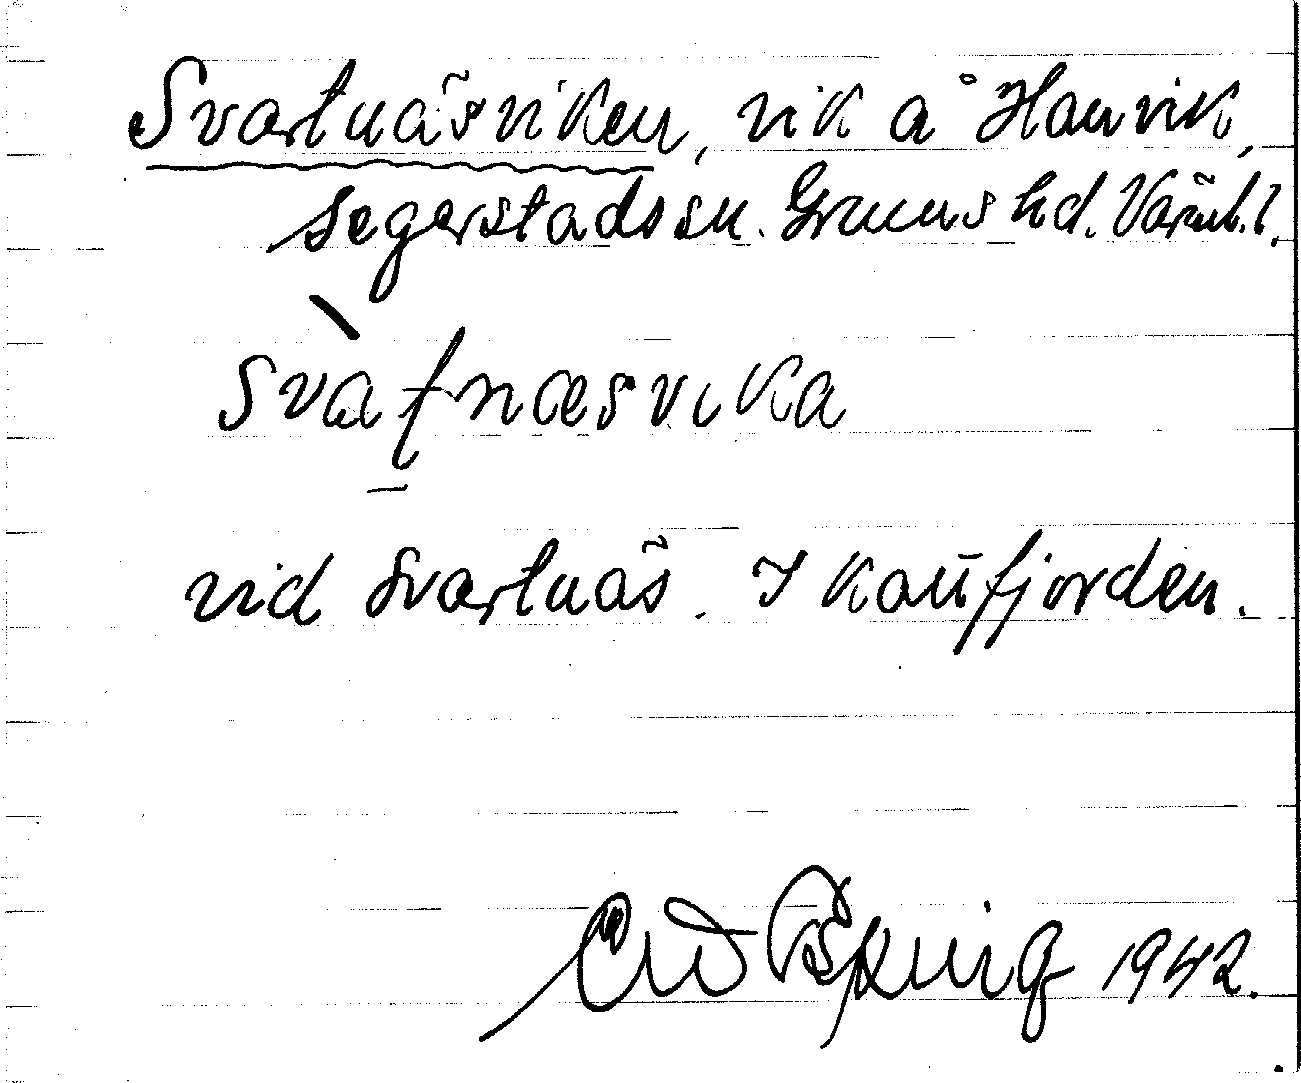 Svartnäsviken, vik å Hanvik,
Segerstads sn. Grums hd. Värml. l.
svàʈnæsvika
vid Svartnäs. I Kattfjorden.
1942.